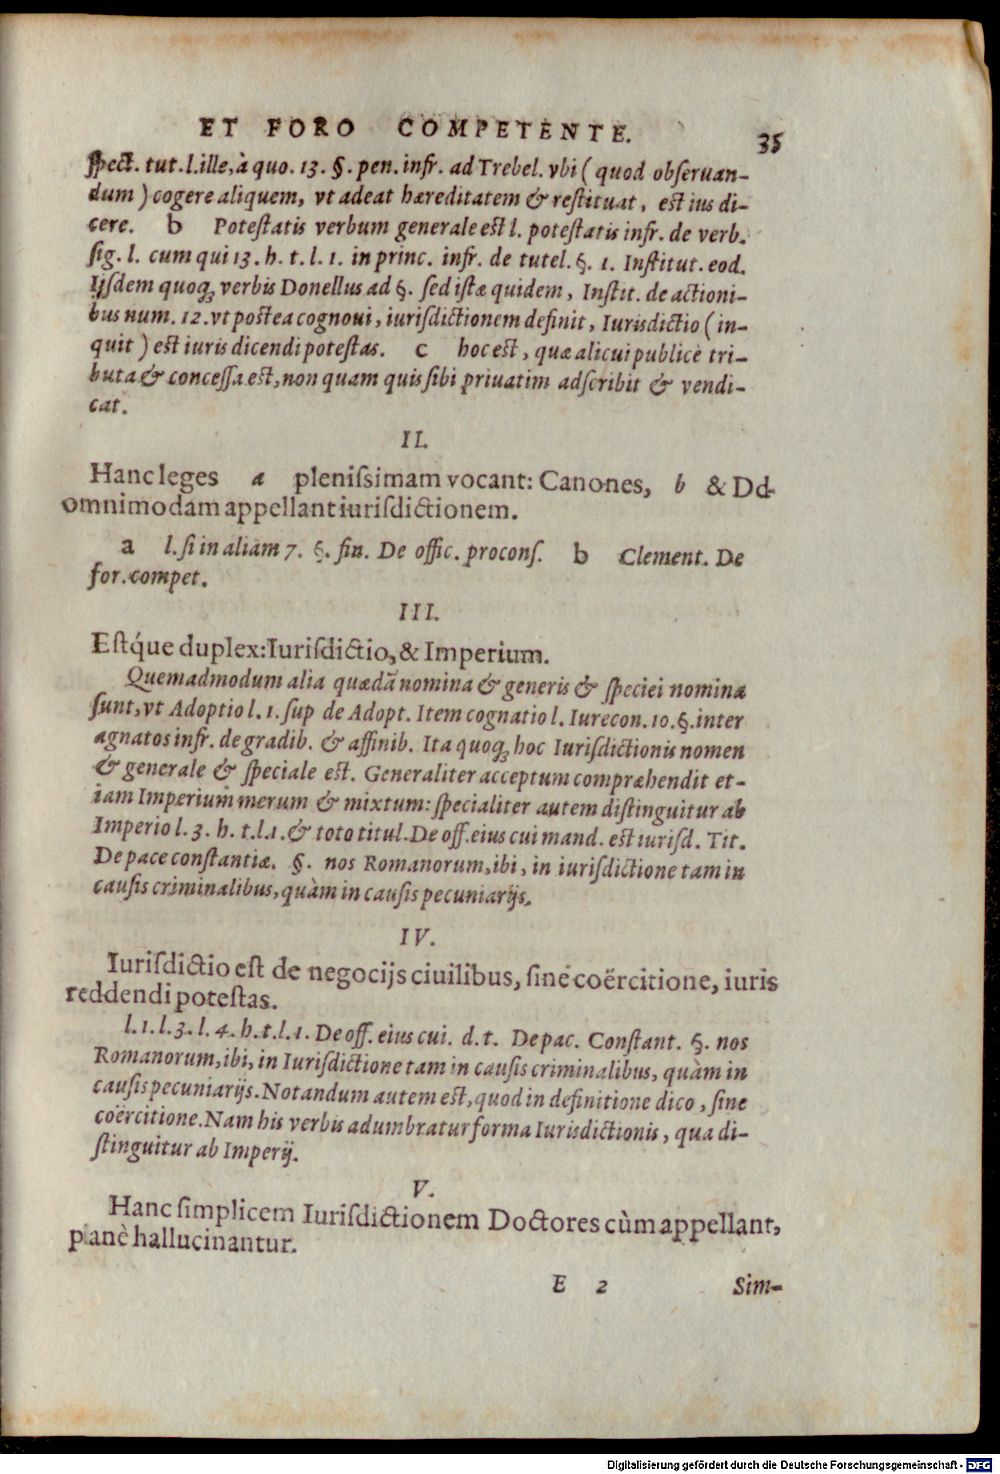 ET FORO COMPETENTE. 35
ſpect. tut. l. ille, à quo. 13. §. pen. infr. ad Trebel. vbi (quod obſeruan-
dum) cogere aliquem, vt adeat hæreditatem & reſtituat, eſt ius di-
cere. b Poteſtatis verbum generale eſt l. poteſtatis infr. de verb.
ſig. l. cum qui 13. h. t. l. 1. in princ. infr. de tutel. §. 1. Inſtitut. eod.
Iiſdem quoq; verbis Donellus ad §. ſed iſtæ quidem, Inſtit. de actioni-
bus num. 12. vt poſtea cognoui, iuriſdictionem definit, Iurisdictio (in-
quit) eſt iuris dicendi poteſtas. c hoc eſt, quæ alicui publicè tri-
buta & conceſſa eſt, non quam quis ſibi priuatim adſcribit & vendi-
cat.
II.
Hanc leges a pleniſsimam vocant: Canones, b & Dd.
omnimodam appellant iuriſdictionem.
a l. ſi in aliam 7. §. fin. De offic. proconſ. b Clement. De
for. compet.
III.
Eſtq́ue duplex: Iuriſdictio, & Imperium.
Quemadmodum alia quædā nomina & generis & ſpeciei nomina
ſunt, vt Adoptio l. 1. ſup de Adopt. Item cognatio l. Iurecon. 10. §. inter
agnatos infr. de gradib. & affinib. Ita quoq; hoc Iuriſdictionis nomen
& generale & ſpeciale eſt. Generaliter acceptum compræhendit et-
iam Imperium merum & mixtum: ſpecialiter autem diſtinguitur ab
Imperio l. 3. h. t. l. 1. & toto titul. De off. eius cui mand. eſt iuriſd. Tit.
De pace conſtantiæ. §. nos Romanorum, ibi, in iuriſdictione tam in
cauſis criminalibus, quàm in cauſis pecuniarijs.
IV.
Iuriſdictio eſt de negocijs ciuilibus, ſine coërcitione, iuris
reddendi poteſtas.
l. 1. l. 3. l. 4. h. t. l. 1. De off. eius cui. d. t. De pac. Conſtant. §. nos
Romanorum, ibi, in Iuriſdictione tam in cauſis criminalibus, quàm in
cauſis pecuniarijs. Notandum autem eſt, quod in definitione dico, ſine
coërcitione. Nam his verbis adumbratur forma Iurisdictionis, qua di-
ſtinguitur ab Imperij.
V.
Hanc ſimplicem Iuriſdictionem Doctores cùm appellant,
planè hallucinantur.
E 2 Sim-
Digitalisierung gefördert durch die Deutsche Forschungsgemeinschaft - DFG